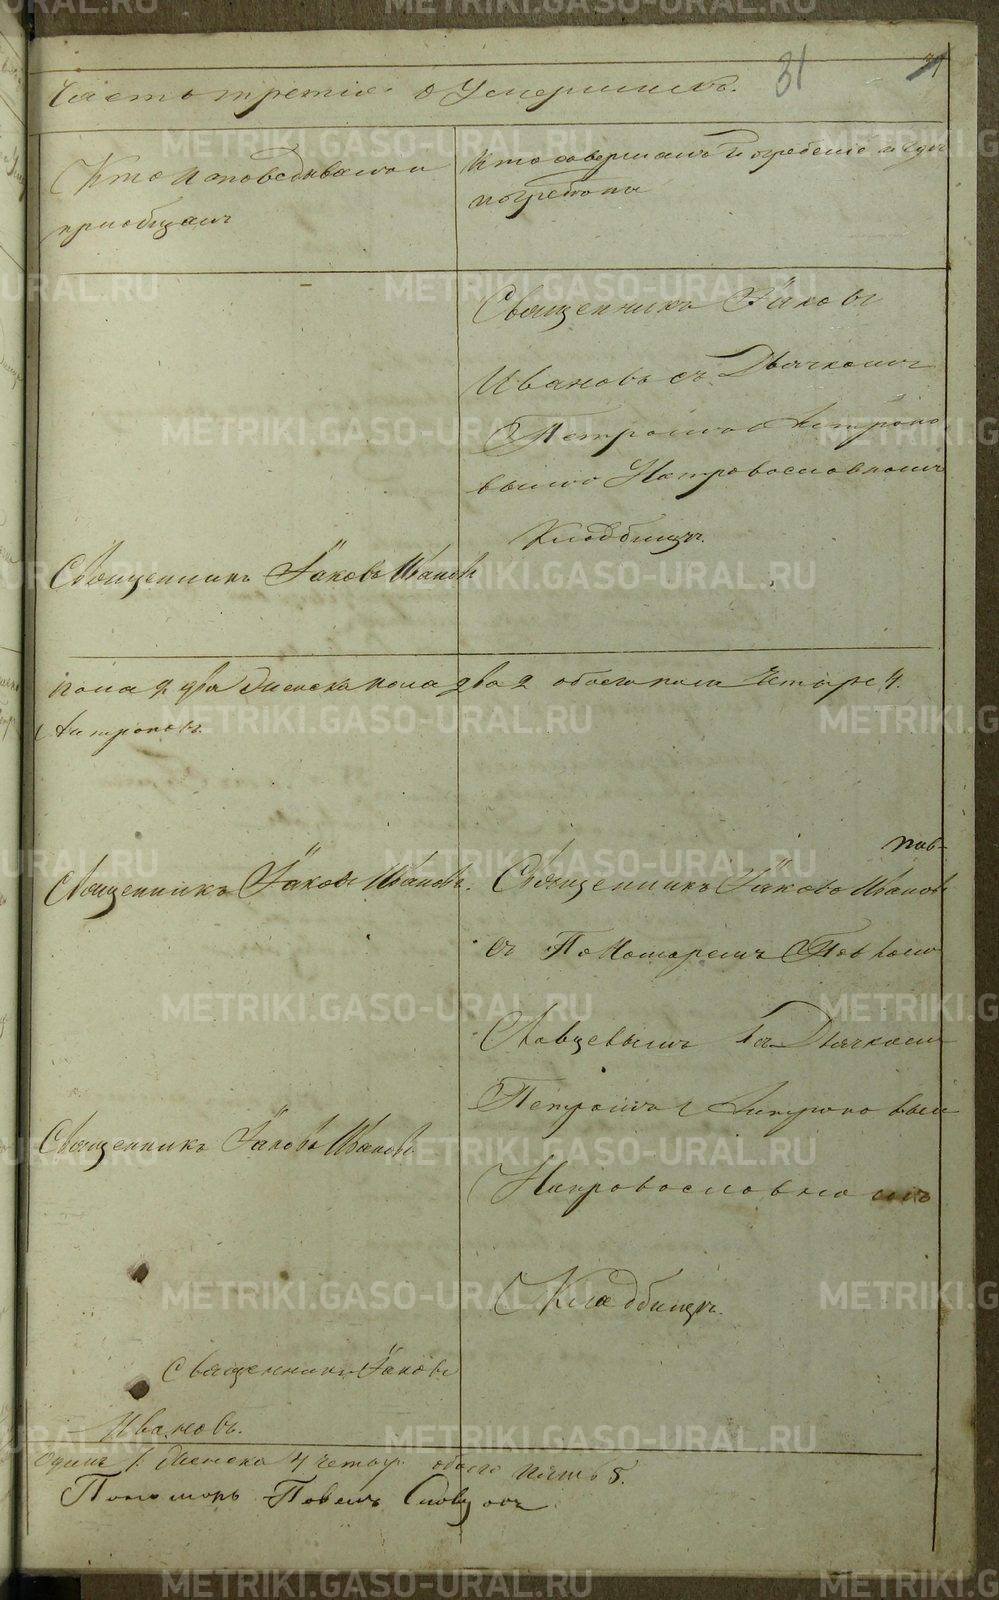 31
Часть третія о Умершихъ.
Кто исповедывалъ и
приобщалъ
Кто совершалъ Погребеніе и где
погребены
Священникъ Іаковъ
Ивановъ съ Дьячкомъ
Петромъ Антропо
вымъ На православномъ
Кладбищѣ.
Священникъ Іаковъ Ивановъ
пола 2 два Женска пола два 2 обоего пола Четыре 4.
Антроповъ.
Священникъ Іаковъ Ивановъ.
Священникъ Іаковъ Ивановъ
съ Пономаремъ Павломъ
Словцевымъ съ Дьячкомъ
Петромъ Антроповым
На православномъ
Кладбищѣ.
Священникъ Іаковъ Ивановъ
Священникъ Іаковъ
Ивановъ.
Одинъ 1. Женска 4 четыр обоего пять 5.
Пономарь Павелъ Словцовъ
METRIKI.GASO-URAL.RU